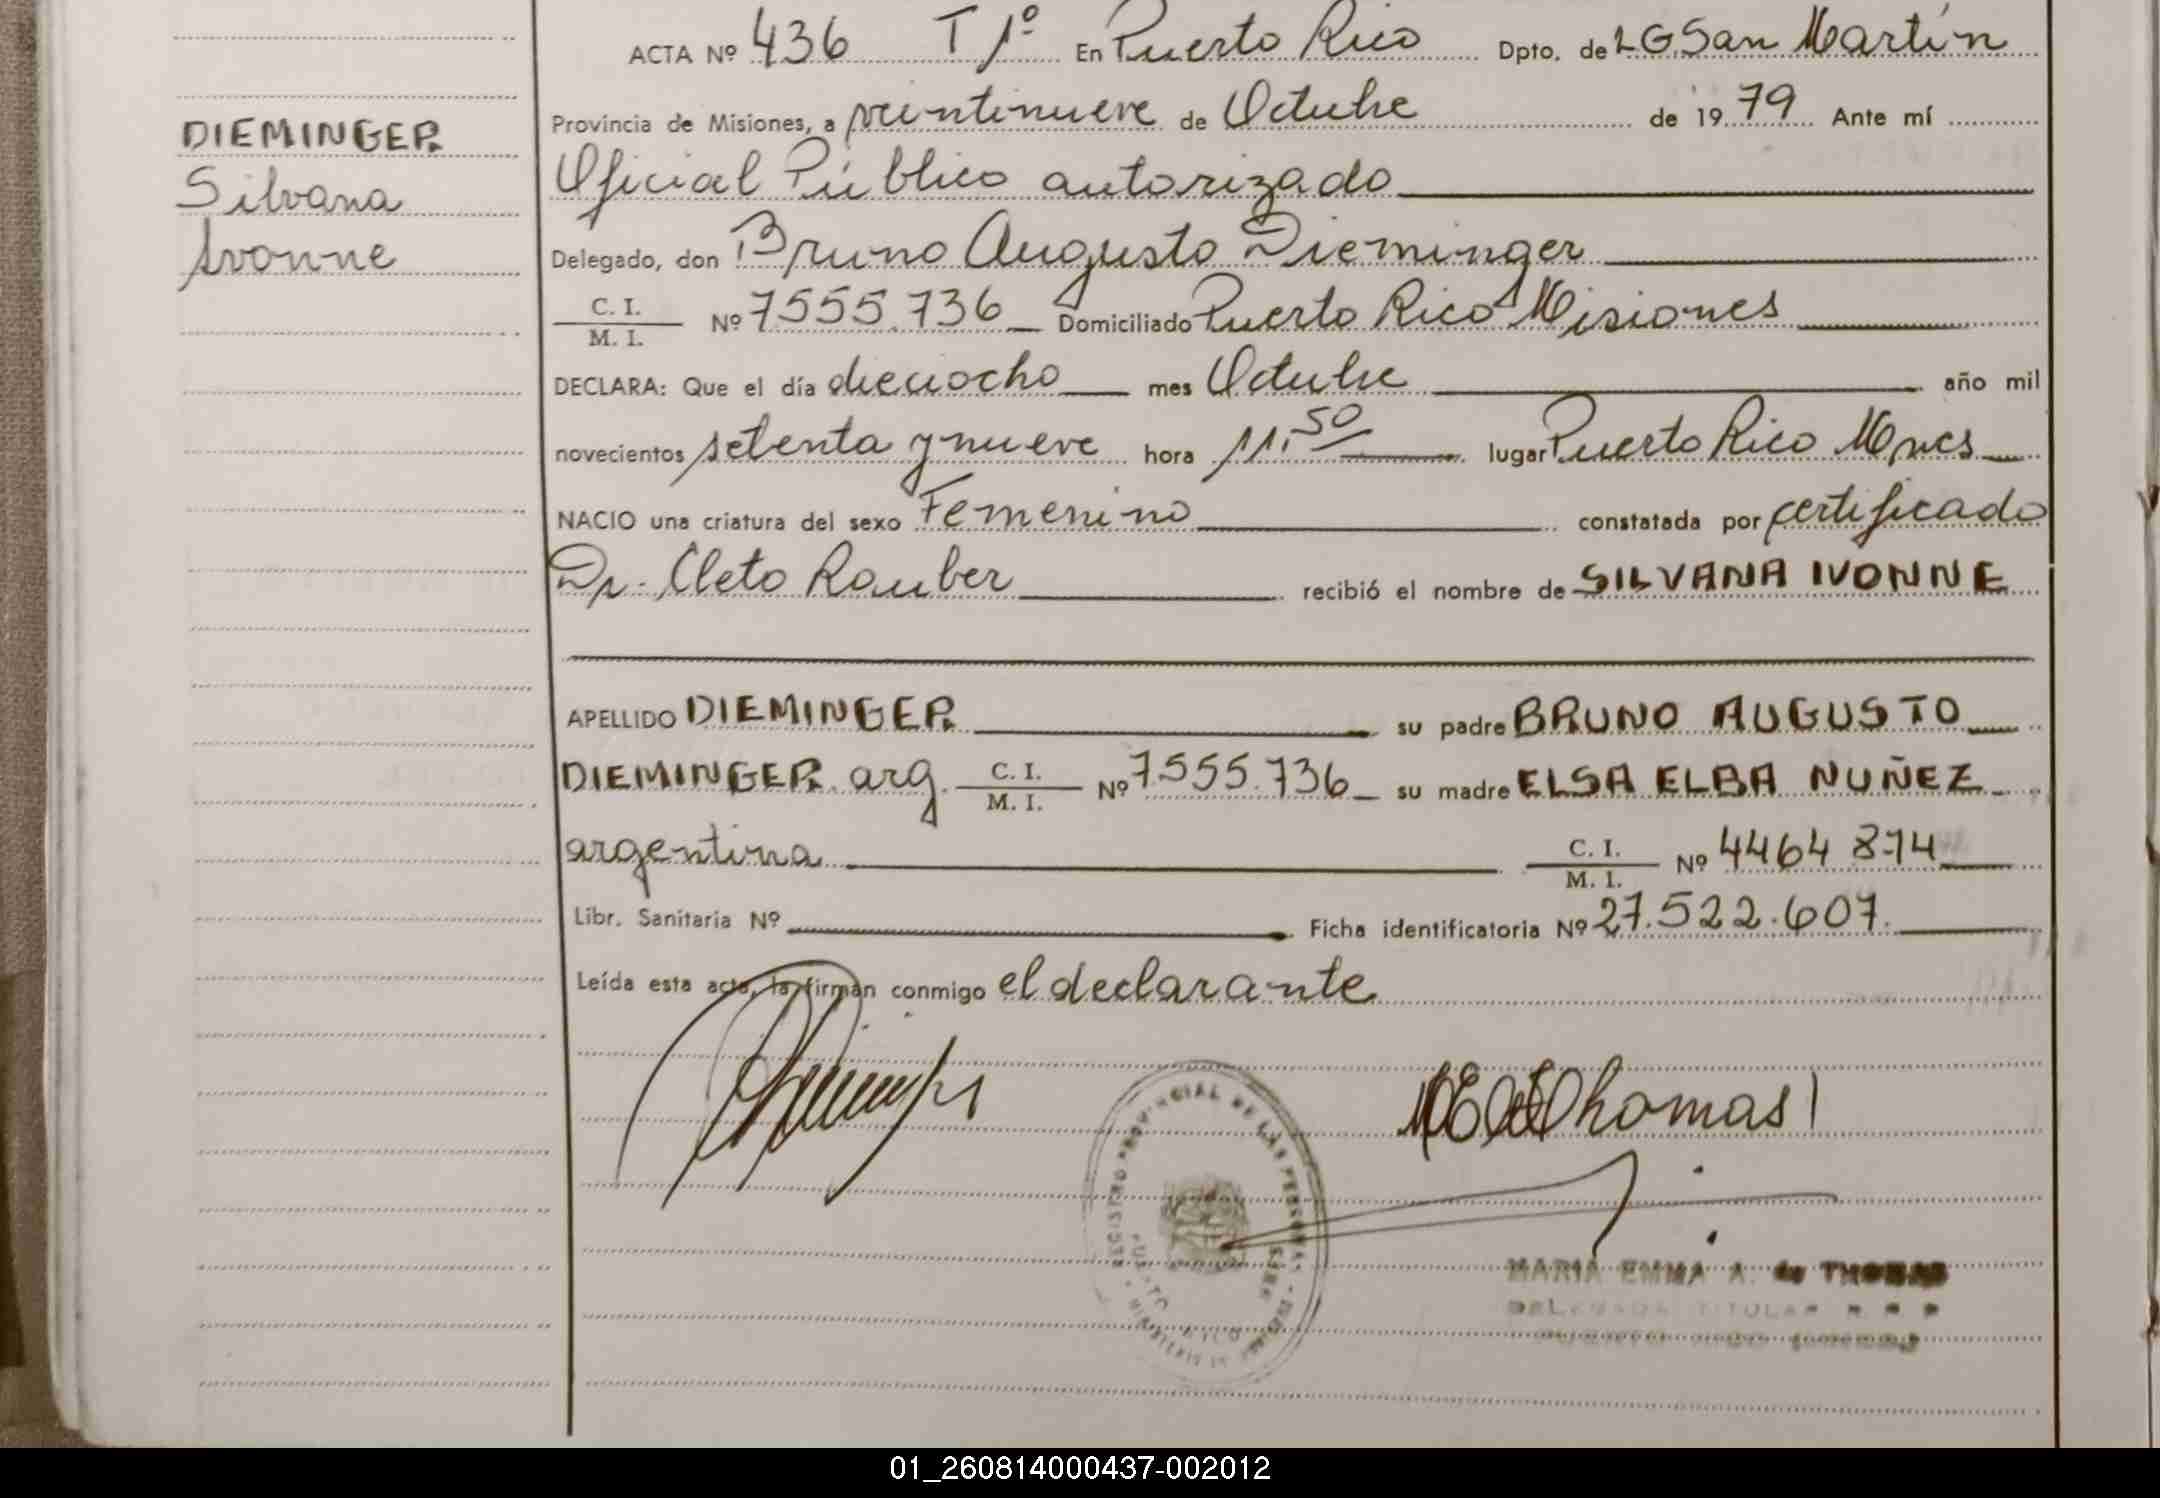 ACTA Nº 436 T 1º En Puerto Rico Dpto. de L.G.San Martín
DIEMINGER
Silvana
Ivonne
Provincia de Misiones, a veintinueve de Octubre de 19 79 Ante mí
Oficial Público autorizado
Delegado, don Bruno Augusto Dieminger
C. I.
M. I. Nº 7555.736 Domiciliado Puerto Rico Misiones
DECLARA: Que el día dieciocho mes Octubre año mil
novecientos setenta y nueve hora 11,50 lugar Puerto Rico Mnes
NACIO una criatura del sexo Femenino constatada por certificado
Dr. Cleto Rauber recibió el nombre de SILVANA IVONNE
APELLIDO DIEMINGER su padre BRUNO AUGUSTO
DIEMINGER arg. C. I. M. I. Nº 7.555.736 su madre ELSA ELBA NUÑEZ
argentina C. I. M. I. Nº 4464 874
Libr. Sanitaria Nº Ficha identificatoria Nº 27.522.607.
Leída esta acta, la firman conmigo el declarante
Thomas
REGISTRO PROVINCIAL DE LAS PERSONAS
PUERTO RICO
MARIA EMMA A. de THOMAS
DELEGADA TITULAR R. P. P.
PUERTO RICO (Misiones)
01_260814000437-002012